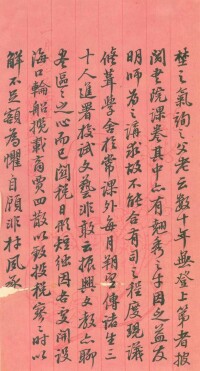 楚之氣詢之父老云數十年無登上第者披
閱書院課卷其中亦有翹秀之子因乏益友
明師為之講求故不能合有司之程度現議
脩葺學舍於常課外每月朔望傳諸生三
十人進署校試文藝非敢云振興文教亦聊
盡區區之心而已關稅日形短絀因各口開設
海口輪船攬載商賈四散以致投稅寥寥時以
解不足額為懼自顧非材風塵